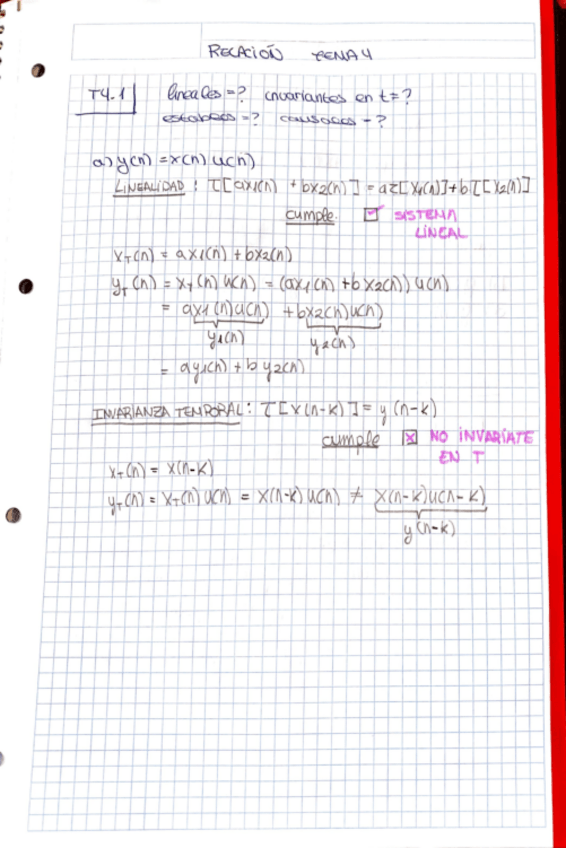 RELACIÓN TEMA 4
T4.1 lineales =? invariantes en t=?
estables =? causales =?
a) y(n) = x(n) u(n)
LINEALIDAD : T[ax1(n) + bx2(n)] = aT[x1(n)] + bT[x2(n)]
cumple ☑ SISTEMA
LINEAL
xT(n) = ax1(n) + bx2(n)
yT(n) = xT(n) u(n) = (ax1(n) + bx2(n)) u(n)
= ax1(n)u(n) + bx2(n)u(n)
y1(n) y2(n)
= ay1(n) + by2(n)
INVARIANZA TEMPORAL: T[x(n-k)] = y(n-k)
cumple ☒ NO INVARIATE
EN T
xT(n) = x(n-k)
yT(n) = xT(n) u(n) = x(n-k) u(n) ≠ x(n-k)u(n-k)
y(n-k)